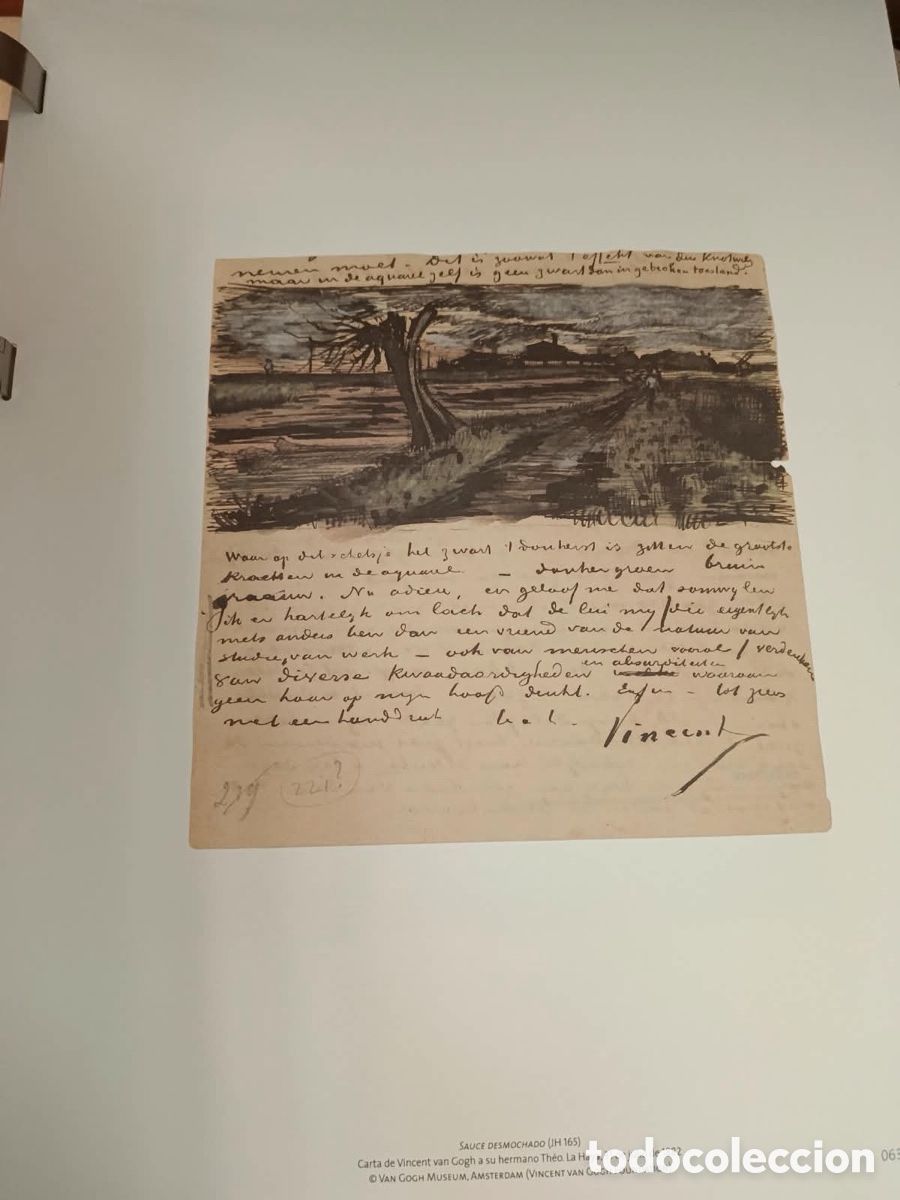 nemen moet. Dit is zoowat 't effekt van den Knotwilg
maar in de aquarel zelf is geen zwart dan in gebroken toestand.
Waar op dit schetsje het zwart 't donkerst is zitten de grootste
krachten in de aquarel — donkergroen bruin
graauw. Nu adieu, en geloof me dat somwijlen
ik er hartelijk om lach dat de lui mij /die eigentlijk
niets anders ben dan een vriend van de natuur van
studie, van werk — ook van menschen vooral/ verdenken
van diverse kwaadaardigheden en absurditeiten waaraan
geen haar op mijn hoofd denkt. Enfin — tot ziens
met een handdruk
Vincent
239 221?
SAUCE DESMOCHADO (JH 165)
Carta de Vincent van Gogh a su hermano Théo. La
© VAN GOGH MUSEUM, AMSTERDAM (VINCENT VAN GOGH
063
todocoleccion